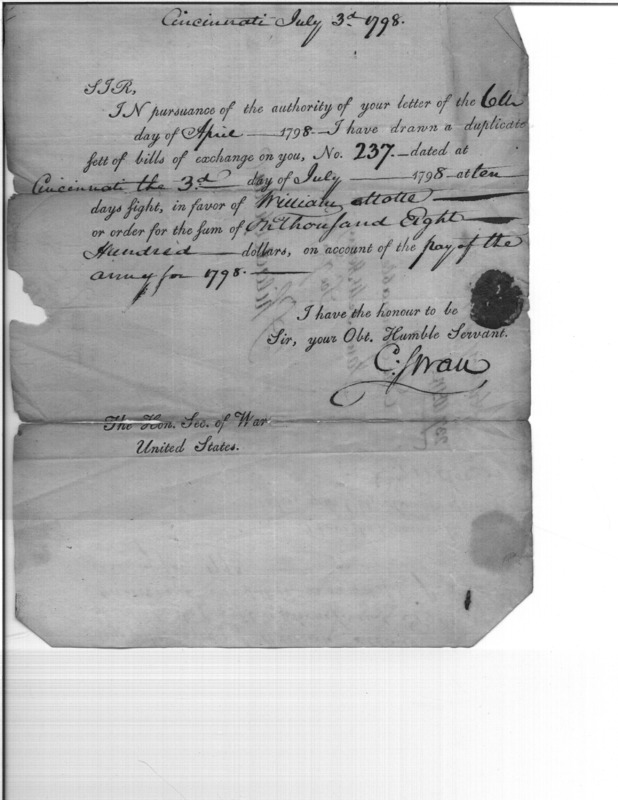 Cincinnati July 3d 1798.
SIR,
IN pursuance of the authority of your letter of the 6th
day of April 1798—I have drawn a duplicate
sett of bills of exchange on you, No. 237.—dated at
Cincinnati the 3d day of July 1798—at ten
days sight, in favor of William
or order for the sum of Thousand Eight
Hundred dollars, on account of the pay of the
army for 1798.
I have the honour to be
Sir, your Obt. Humble Servant.
C. Swan
The Hon. Sec. of War
United States.